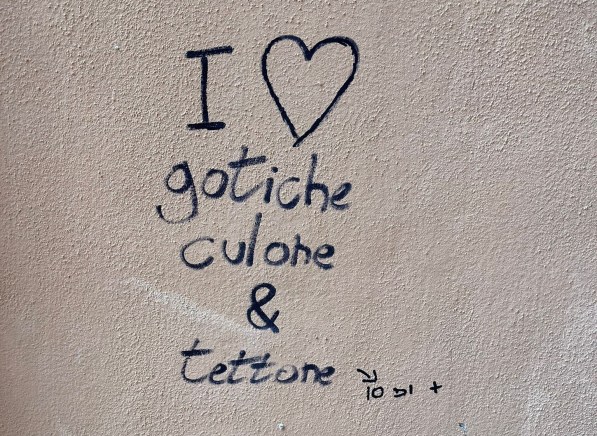 I ♡
gotiche
culone
&
tettone
↘ io di +